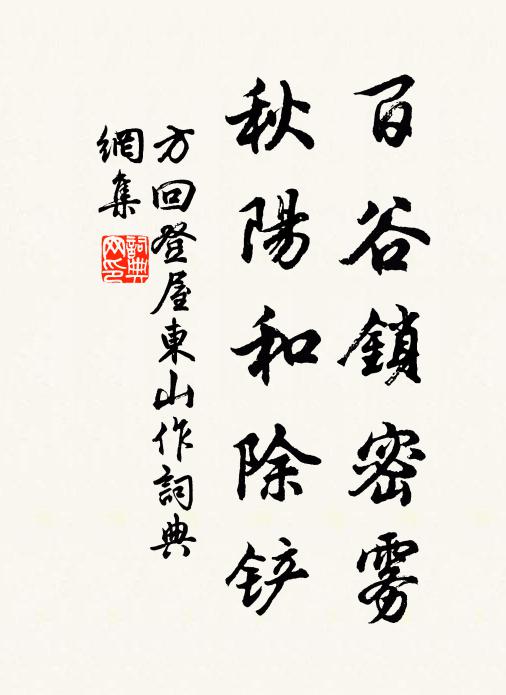 百谷鎖密雾
秋陽和除铲
方回登屋東山作詞典
網集
詞典网印